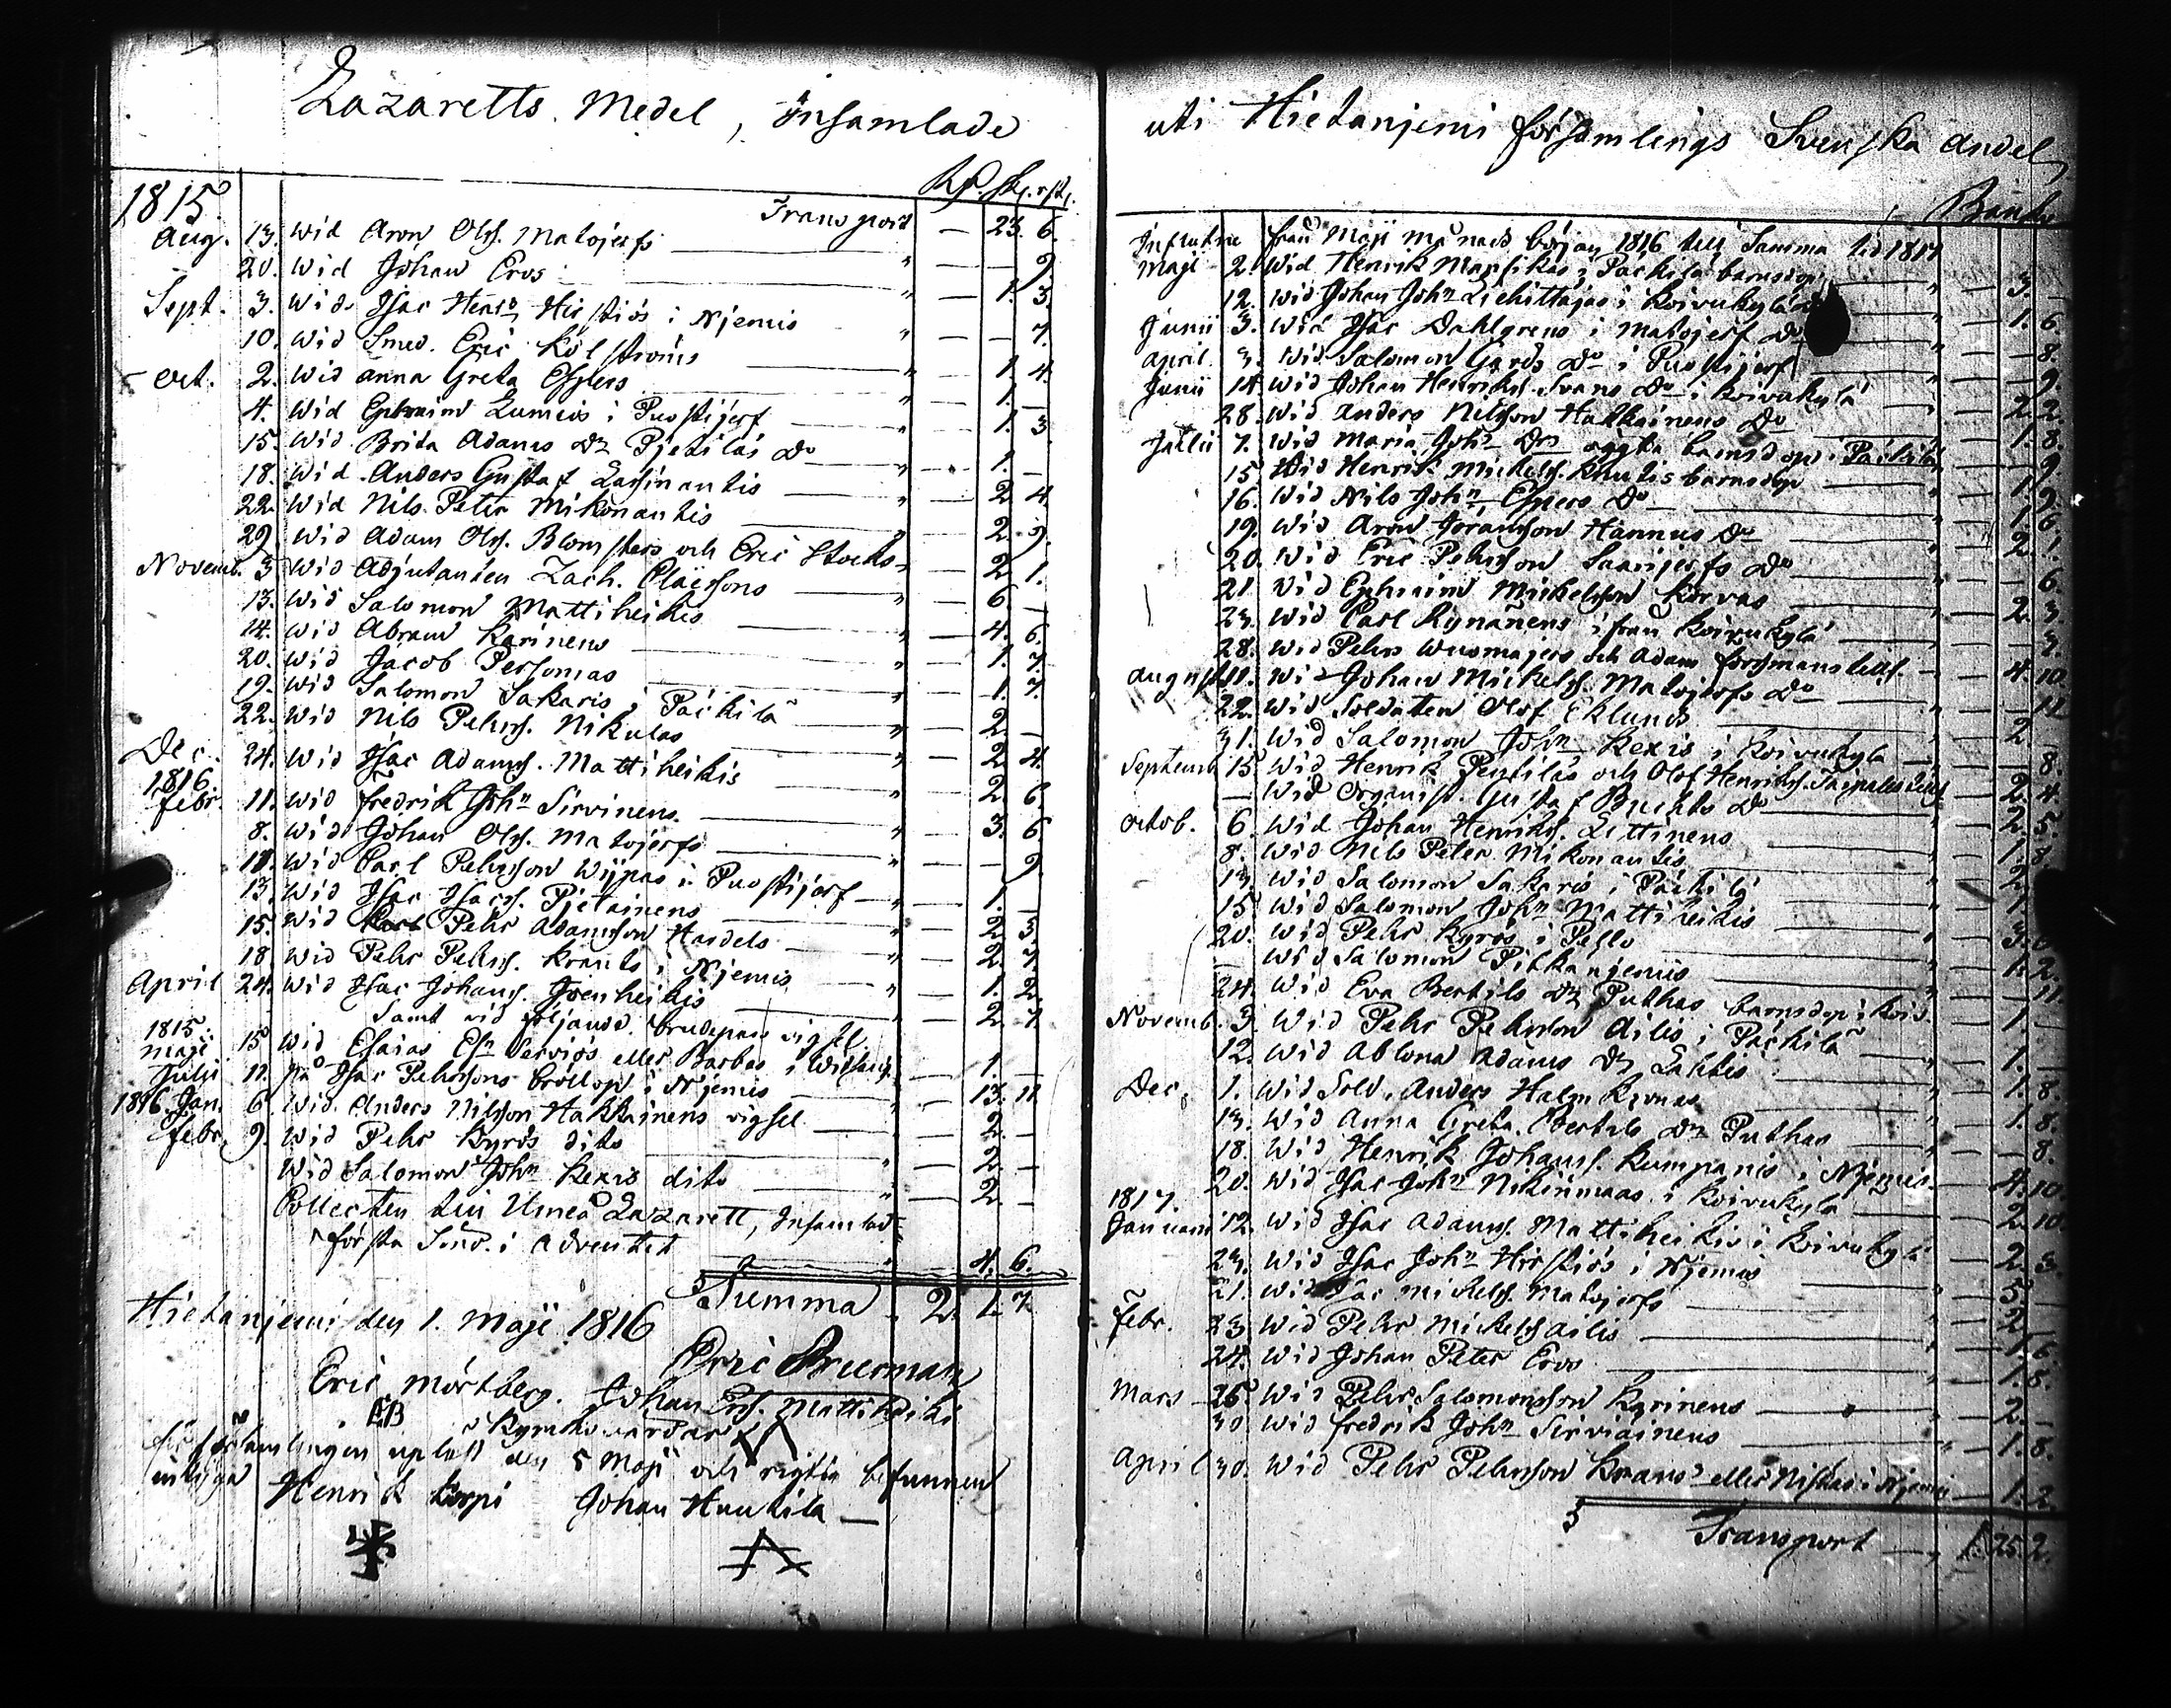 Lazaretts Medel, insamlade
Rd. sk. rst.
1815. Transport — 23. 6.
Aug. 13. Wid Aron Olss. Matojerfs — 9.
20. Wid Johan Eros — 1. 3.
Sept. 3. Wid Isac Hens Hirstiös i Njemis — 7.
10. Wid Smed. Eric Kölströms — 1. 4.
Oct. 2. Wid Anna Greta Espers — 1. —
4. Wid Ephraim Lumeio i Puostijerf — 1. 3
15. Wid Brita Adams Dr Pjetiläs Do — 1. —
18. Wid Anders Gustaf Lassinantis — 2. 4.
22. Wid Nils Peter Mikonantis — 2. 9.
29. Wid Adam Olss. Blomsters och Eric Stocks — 2. 1.
Novemb. 3 Wid Adjutanten Zach. Claessons — 6. —
13. Wid Salomon Mattiheikis — 4. 6.
14. Wid Abram Karinens — 1. 7.
20. Wid Jacob Persomas — 1. 7.
19. Wid Salomon Sakaris i Päckilä — 2. —
22. Wid Nils Pehrs. Nikulas — 2. 4.
Dec. 24. Wid Isac Adams. Mattiheikis — 2. 6.
1816.
Febr. 11. Wid Fredrik Johns Sirvinens — 3. 6.
8. Wid Johan Olss. Matojerfs — 9.
11. Wid Carl Pehrsson Wijpas i Puostijerf — 1. —
13. Wid Isac Isacs. Pjetäinens — 2. 3.
15. Wid Pehr Adamsson Hardels — 2. 7.
18. Wid Pehr Pehrs. Krants i Njemis — 1. 2.
April 24. Wid Isac Johans. Joenheikis — 2. 7
Samt vid följande brudepars vigsel
1815.
Maji 15 Wid Esaias Es Serviös eller Barbas i — 1. —
Julii 11. på Isac Pehrssons bröllop i Njemis — 13. 11
1816. Jan. 6. Wid Anders Nilsson Hakkainens vigsel — 2. —
Febr. 9. Wid Pehr Kyrös dito — 2. —
Wid Salomon Johns Kexis dito — 2. —
Collecten till Umeå Lazarett, Insamlad
första Sönd. i Adventet — 4. 6.
Summa 2. 1. 7.
Hietanjemi den 1. Maji 1816
Eric Brucrman
Eric Mörtberg. Johan Ers. Mattiheiki
EB Kyrkovärdar
för församlingen upläst den 5 Maji och rigtig befunnen
intyga
Henrik Korpi Johan Huukila
uti Hietanjemi församlings Svenska andel
Banko
Influtne från Maji månads början 1816 till samma tid 1817
Maji 2. Wid Henrik Marsikas i Päckilä barnsdop — 3. —
12. Wid Johan Johns Liehittäjas i Koivukylä — 1. 6.
Junii 3. Wid Isac Dahlgrens i Matojerf Do — 8.
April 3. Wid Salomon Gards Do i Puostijerf — 9.
Junii 14. Wid Johan Henrikss. Svans Do i Koivukylä — 2. 2.
28. Wid Anders Nilsson Hakkainens Do — 1. 8.
Julii 7. Wid Maria Johns Dr oägta barnsdop i Päckilä — 9.
15 Wid Henrik Mickelss. Knutis barnsdop — 1. 9.
16. Wid Nils Johns Espers Do — 1. 6.
19. Wid Aron Joransson Hannus Do — 2. 1.
20. Wid Eric Pehrsson Saarijerfs Do — 6.
21. Wid Ephraim Mickelsson Korvas — 2. 3.
23. Wid Carl Rynänens ifrån Koivukylä — 3.
28. Wid Pehrs Wuomajers och Adam Forsmans — 4. 10.
August 11. Wid Johan Mickelss. Matojerfs Do — 11.
22. Wid Soldaten Olof Eklunds — 2
31. Wid Salomon Johns Kexis i Koivukylä — 8.
Septemb. 15. Wid Henrik Pentiläs och Olof Henrikss. Taipales — 2. 4.
— Wid Organist. Gustaf Buchts Do — 2. 5.
Octob. 6. Wid Johan Henrikss. Littinens — 1. 8.
8. Wid Nils Peter Mikonantis — 2.
13. Wid Salomon Sakaris i Päckilä
15. Wid Salomon Johns Mattiheikis
20. Wid Pehr Kyrös i Pello — 3. 6
— Wid Salomon Pitkänjemis — 1. 2.
24. Wid Eva Bertils Dr Puthas barnsdop i Koiv. — 11.
Novemb. 3. Wid Pehr Pehrsson Ailis i Päckilä — 1. —
12. Wid Ablona Adams Dr Lahtis — 1. —
Dec. 1. Wid Sold. Anders Halm — 1. 8.
13. Wid Anna Greta Bertils Dr Puthas — 1. 8.
18. Wid Henrik Johanss. Kumpanis i Njemis — 8.
20. Wid Isac Johns Nikinmaas i Koivukylä — 4. 10.
1817.
Januarii 12. Wid Isac Adams. Mattiheikis i Koivukylä — 2. 10.
23. Wid Isac Johns Hirstiös i Njemis — 2. 3.
21. Wid Isac Mickelss. Matojerfs — 5 —
Febr. 23. Wid Pehr Mickelss Ailis — 2 —
24. Wid Johan Peter Eros — 1. 6.
Mars 26. Wid Pehr Salomonsson Karinens — 2. —
30 Wid Fredrik Johns Sirviäinens — 1. 8.
April 30. Wid Pehr Pehrsson Krans eller Niskas i Njemis — 1. 2
Transport — 1. 25. 2.